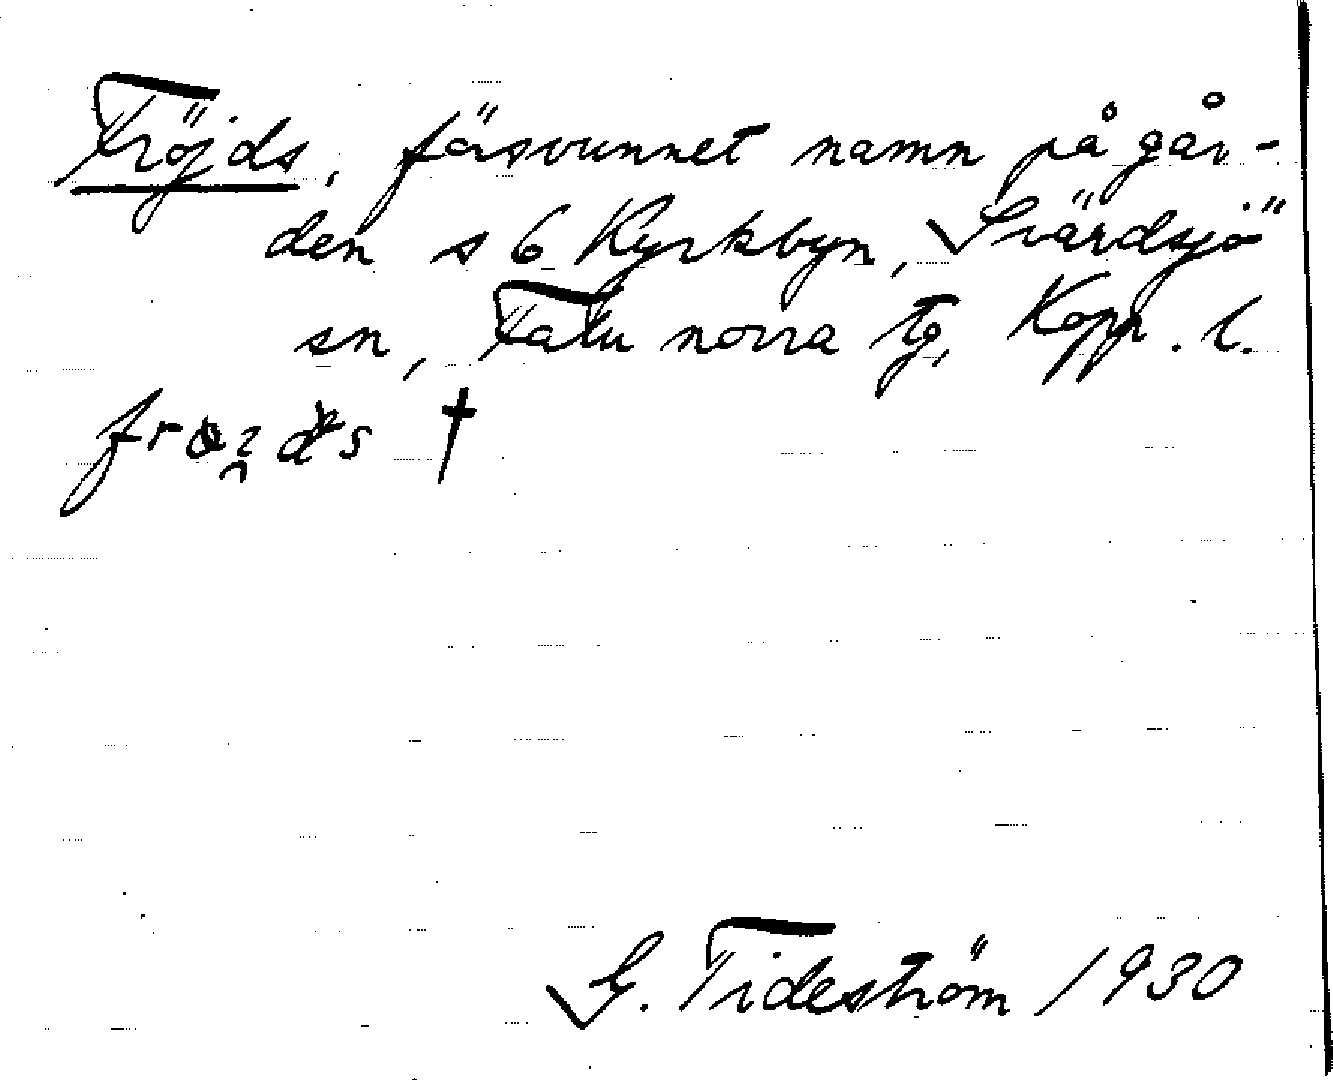 Fröjds, försvunnet namn på går-
den s 6 Kyrkbyn, Svärdsjö
sn, Falu norra tg, Kopp. l.
†
G. Tideström 1930